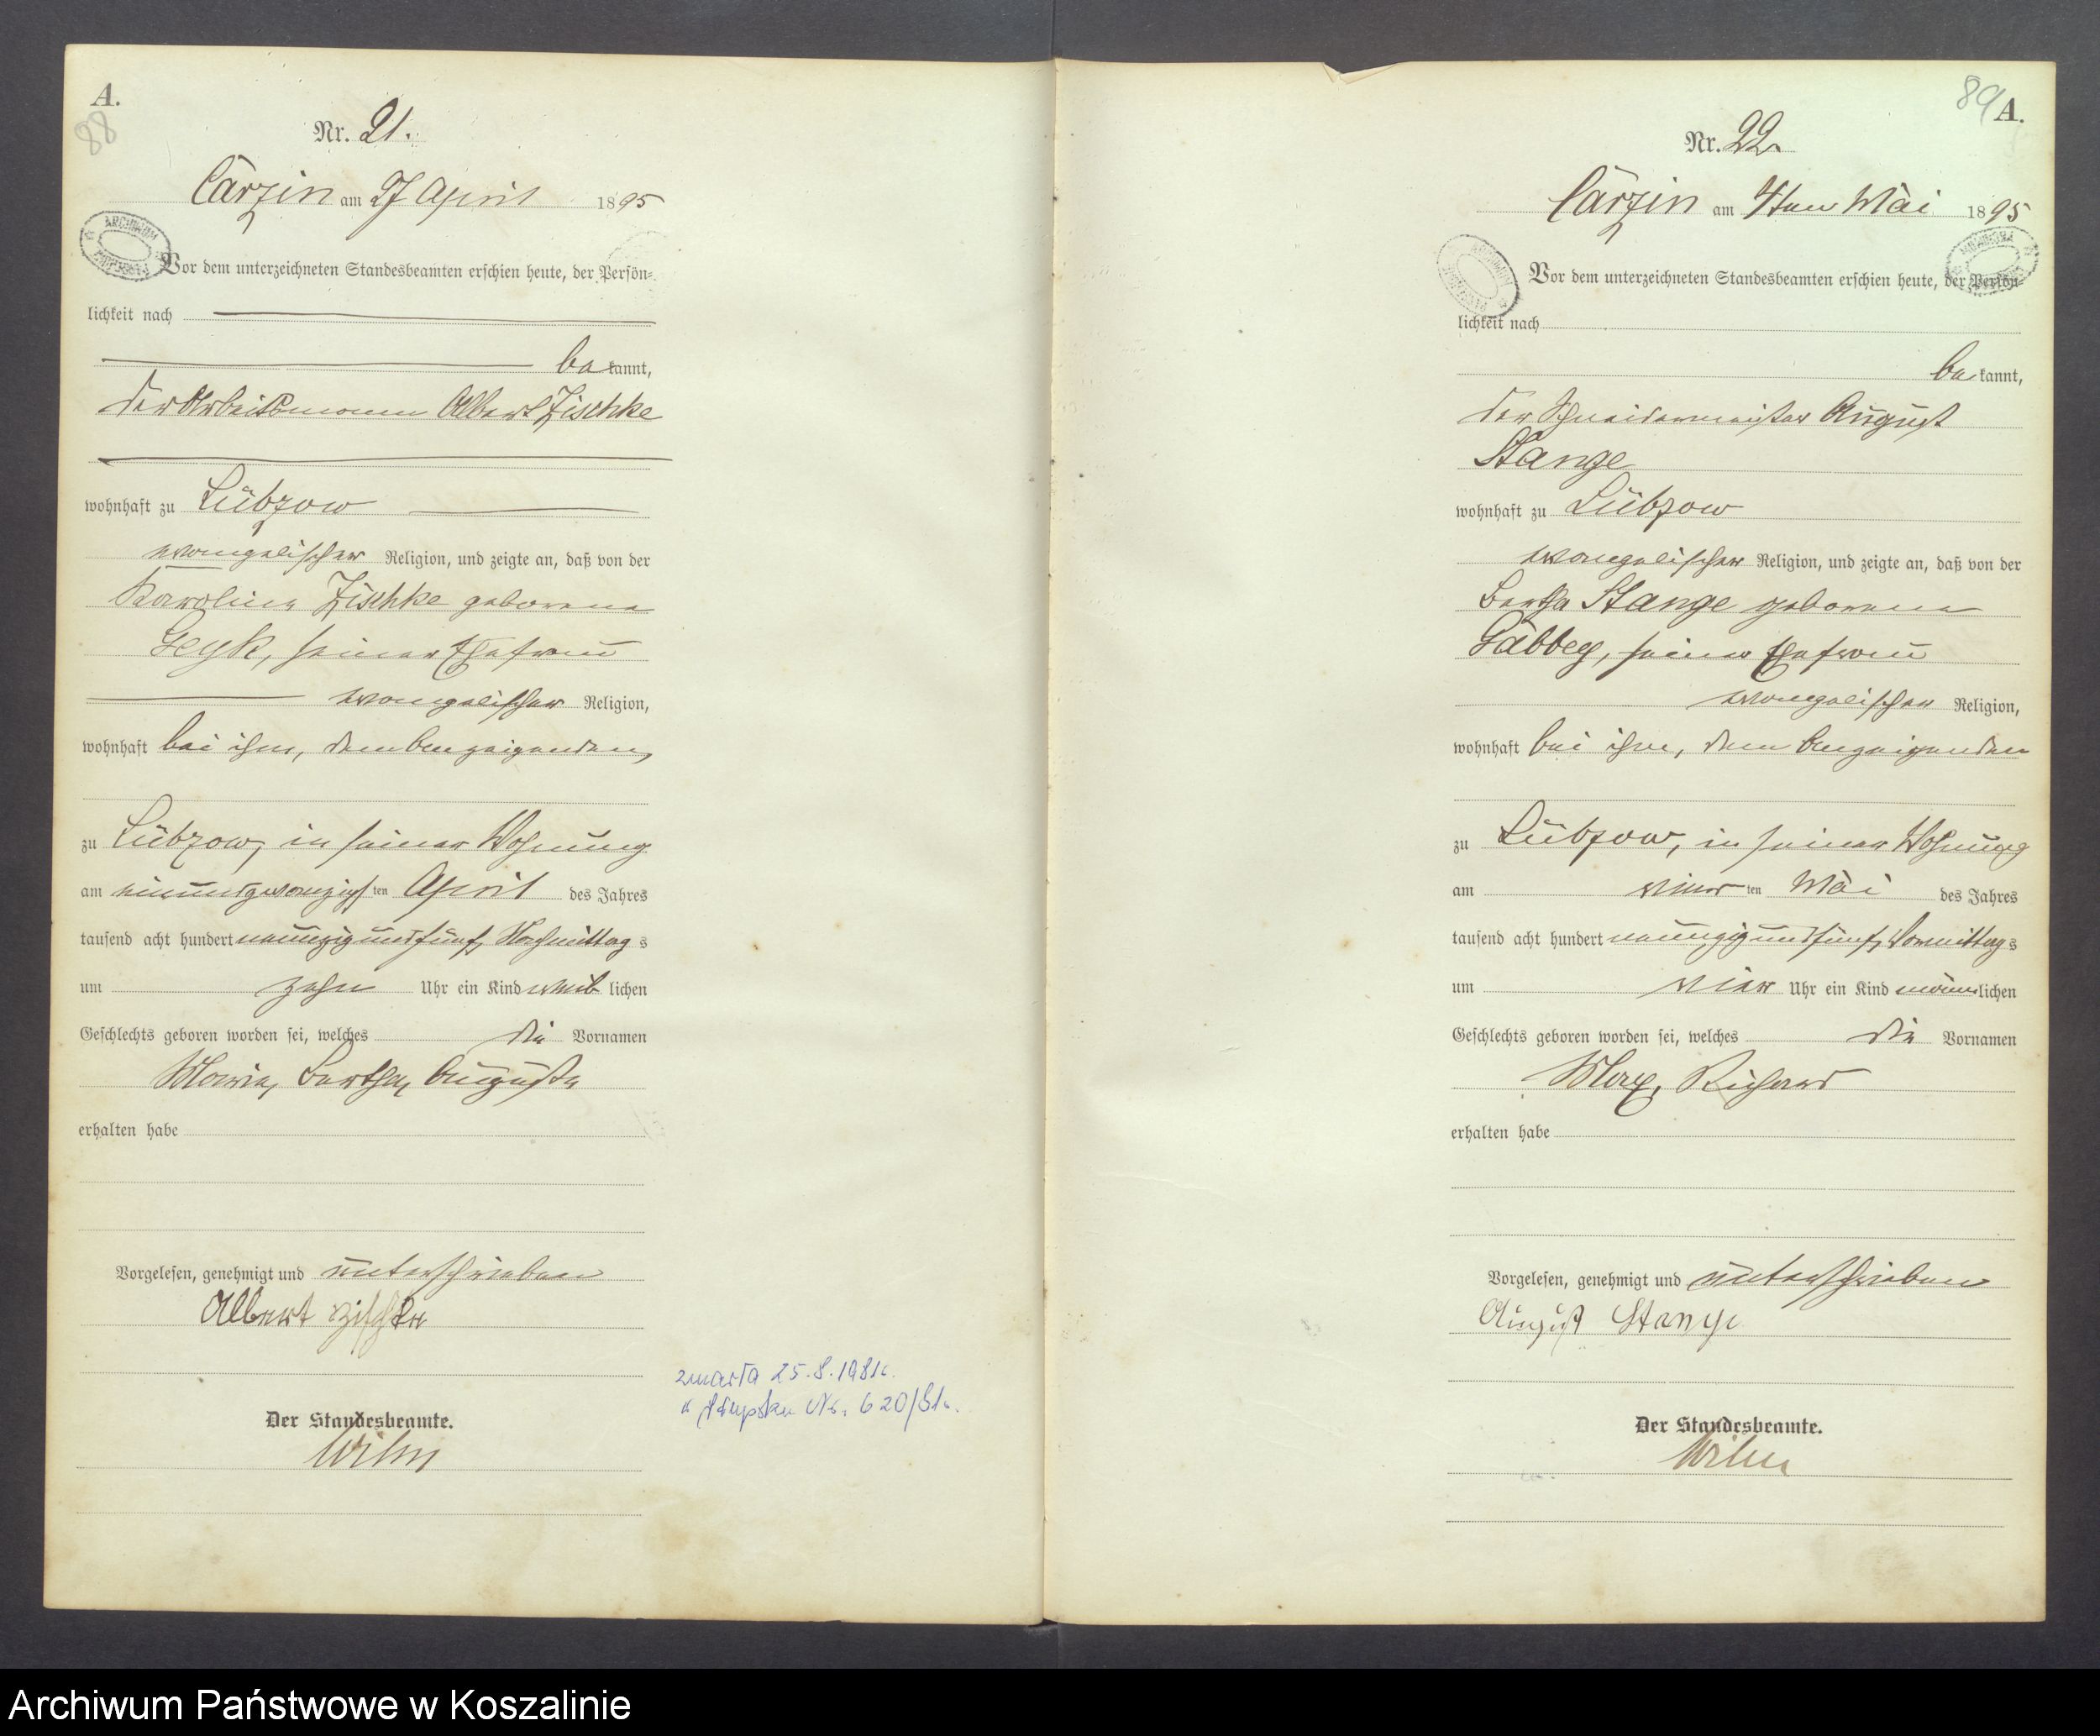 A.
88
Nr. 21.
Carzin am 27 April 1895
ARCHIWUM
Vor dem unterzeichneten Standesbeamten erschien heute, der Persön-
lichkeit nach
be kannt,
der Arbeitsmann Albert Zischke
wohnhaft zu Lübzow
evangelischer Religion, und zeigte an, daß von der
Karoline Zischke geborene
Geyk, seiner Ehefrau
evangelischer Religion,
wohnhaft bei ihm, dem Anzeigenden,
zu Lübzow, in seiner Wohnung
am ten April des Jahres
tausend acht hundert neunzig und fünf, Nachmittag s
um zehn Uhr ein Kind weib lichen
Geschlechts geboren worden sei, welches die Vornamen
Marie, Bertha, Auguste
erhalten habe
Vorgelesen, genehmigt und unterschrieben
Albert Zischke
Der Standesbeamte.
Wilm
zmarła 25.8.1981r.
w Słupsku Nr. 620/81r.
89
A.
Nr. 22.
Carzin am 4ten Mai 1895
Vor dem unterzeichneten Standesbeamten erschien heute, der Persön-
lichkeit nach
be kannt,
der Schneidermeister August
Stange
wohnhaft zu Lübzow
evangelischer Religion, und zeigte an, daß von der
Bertha Stange geborene
Gäbbey, seiner Ehefrau
evangelischer Religion,
wohnhaft bei ihm, dem Anzeigenden
zu Lübzow, in seiner Wohnung
am vier ten Mai des Jahres
tausend acht hundert neunzig und fünf, Vormittag s
um vier Uhr ein Kind männ lichen
Geschlechts geboren worden sei, welches die Vornamen
Max, Richard
erhalten habe
Vorgelesen, genehmigt und unterschrieben
August Stange
Der Standesbeamte.
Wilm
Archiwum Państwowe w Koszalinie